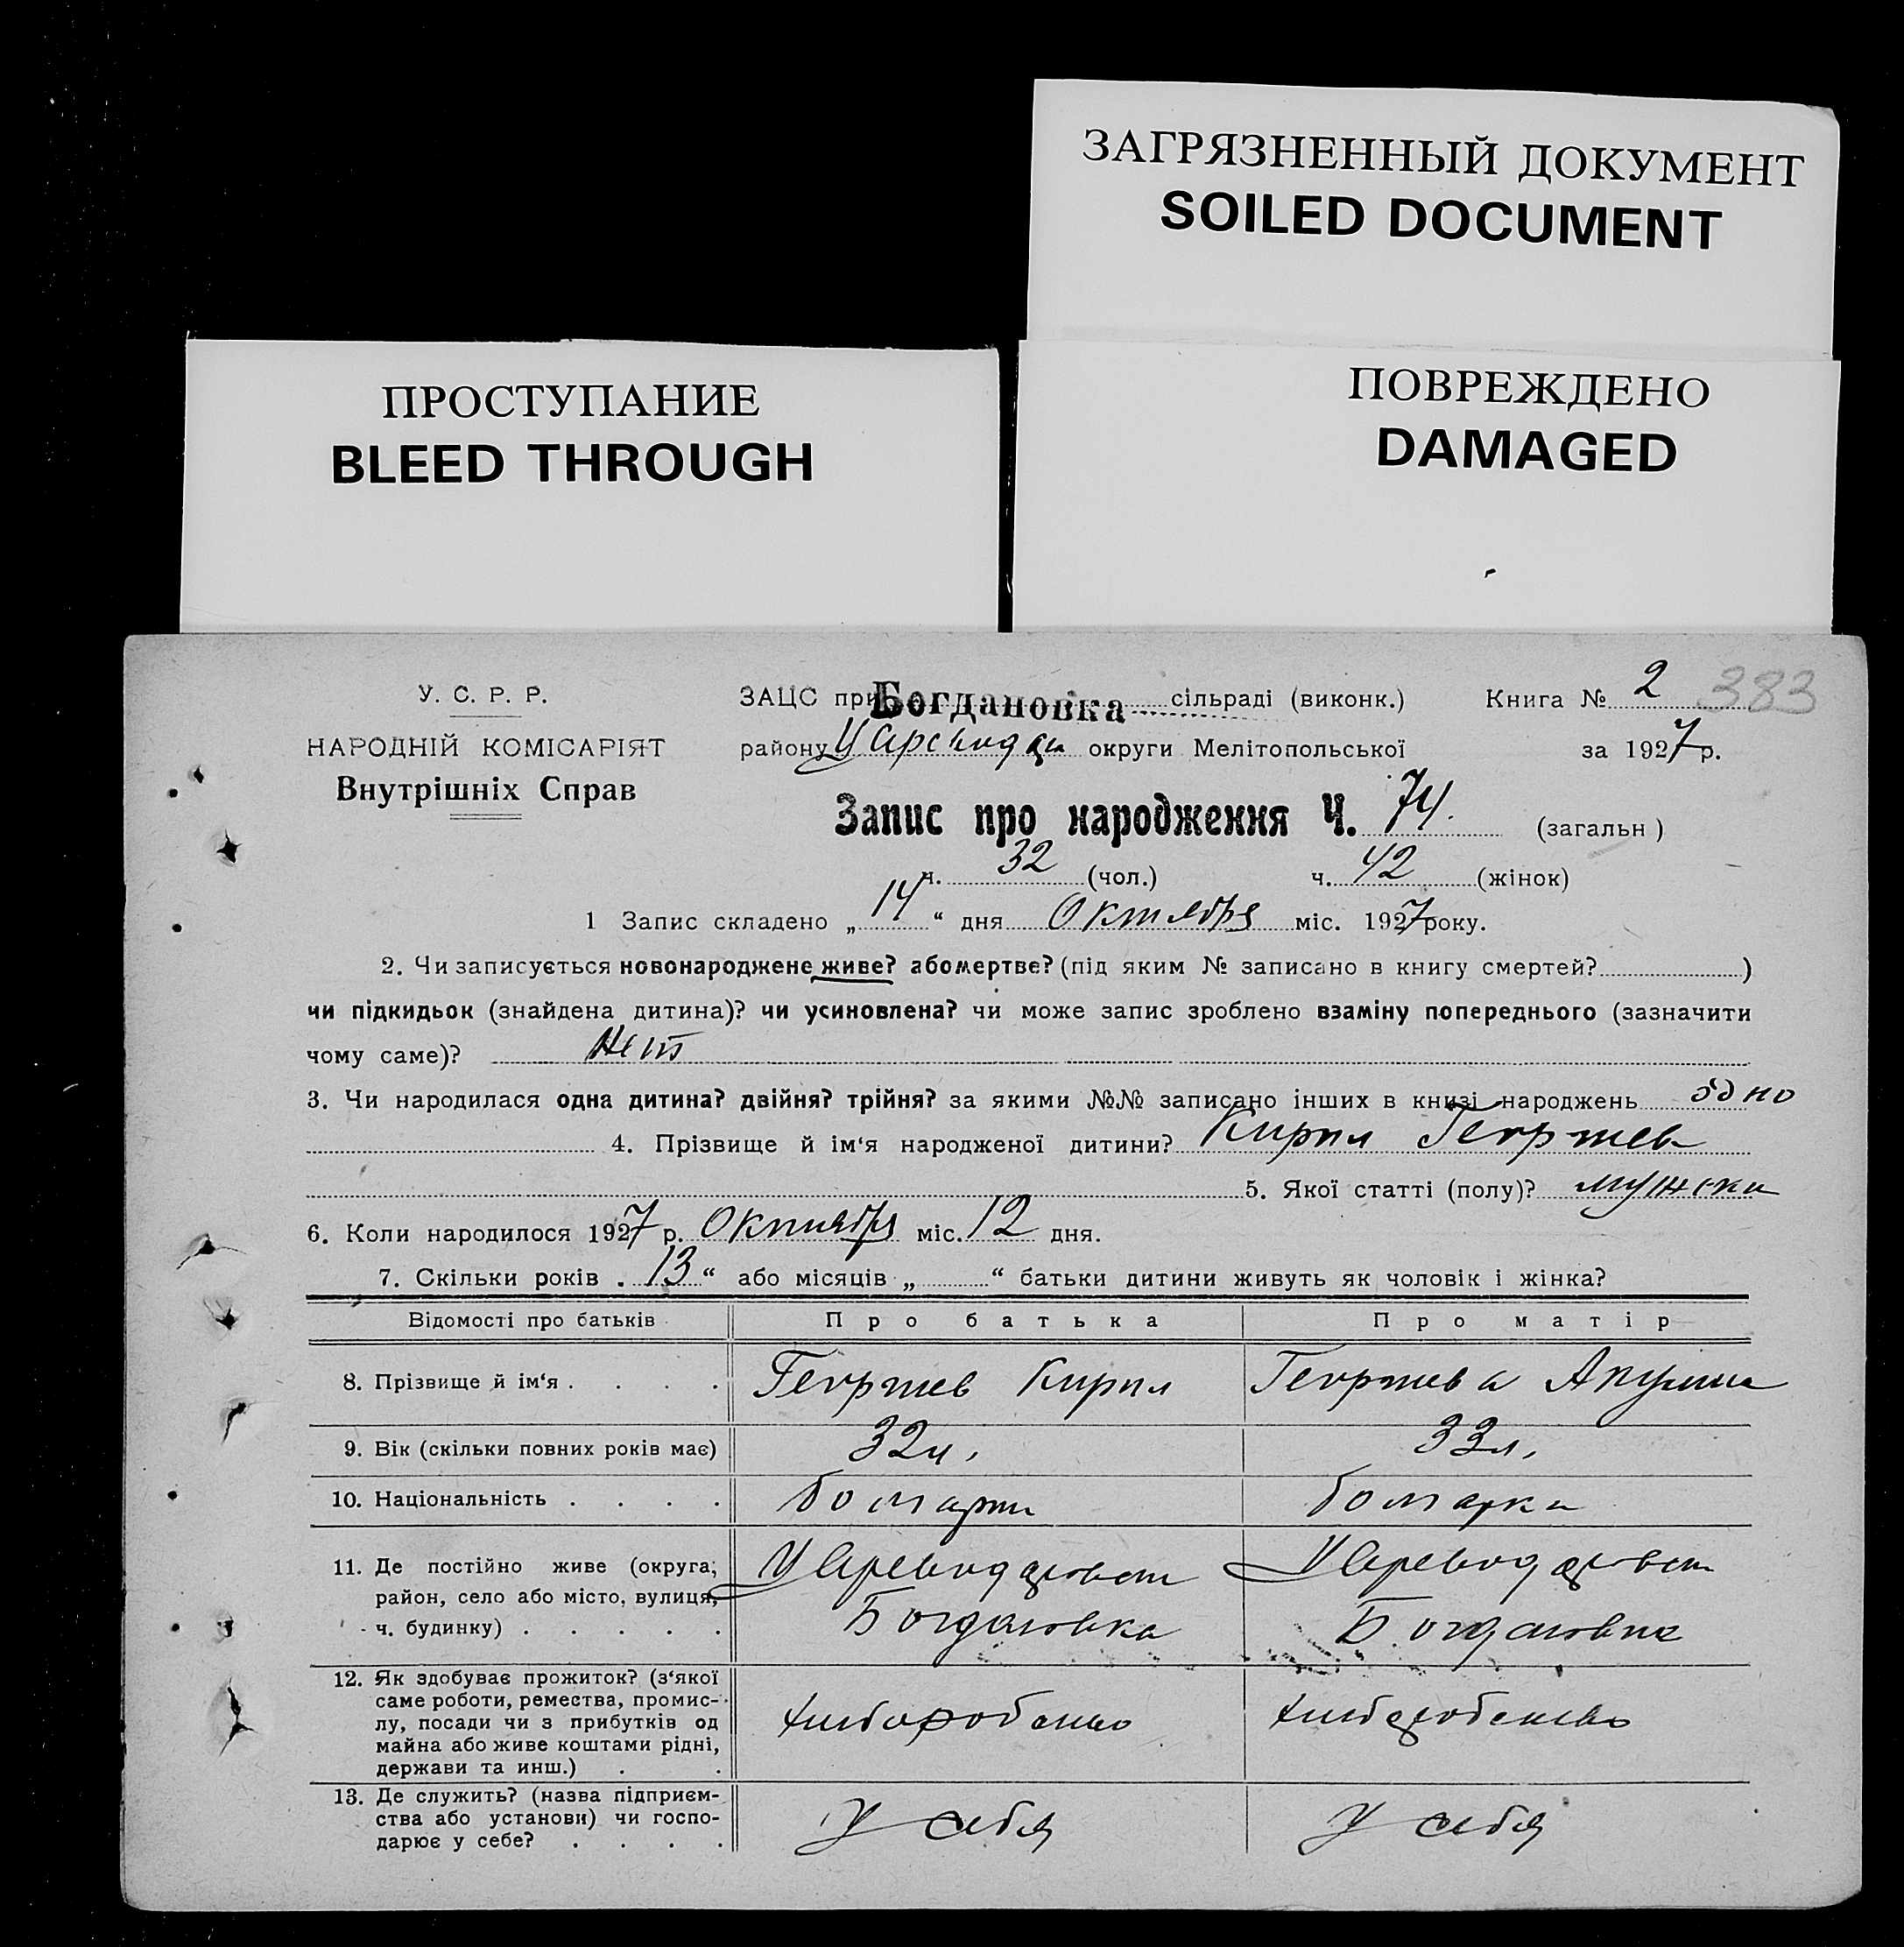 ЗАГРЯЗНЕННЫЙ ДОКУМЕНТ
SOILED DOCUMENT
ПРОСТУПАНИЕ
BLEED THROUGH
ПОВРЕЖДЕНО
DAMAGED
У. С. Р. Р.
НАРОДНІЙ КОМІСАРІЯТ
Внутрішніх Справ
ЗАЦС при Богдановка сільраді (виконк.) Книга № 2 383
району округи Мелітопольської за 1927 р.
Запис про народження Ч. 74. (загальн)
ч. 32 (чол.) ч. 42 (жінок)
1 Запис складено „14“ дня Октября міс. 1927 року.
2. Чи записується новонароджене живе? або мертве? (під яким № записано в книгу смертей? )
чи підкидьок (знайдена дитина)? чи усиновлена? чи може запис зроблено взаміну попереднього (зазначити
чому саме)? Нет
3. Чи народилася одна дитина? двійня? трійня? за якими №№ записано інших в книзі народжень одно
4. Прізвище й ім‘я народженої дитини? Кирил Георгиев
5. Якої статті (полу)? мужски
6. Коли народилося 1927 р. Октября міс. 12 дня.
7. Скільки років „13“ або місяців „ “ батьки дитини живуть як чоловік і жінка?
Відомості про батьків Про батька Про матір
8. Прізвище й ім‘я . . . . Георгиев Кирил Георгиева Акулина
9. Вік (скільки повних років має) 32 л. 33 л.
10. Національність . . . . болгарин болгарка
11. Де постійно живе (округа,
район, село або місто, вулиця,
ч. будинку) . . . . . Богдановка Богдановка
12. Як здобуває прожиток? (з‘якої
саме роботи, ремества, промис-
лу, посади чи з прибутків од
майна або живе коштами рідні,
держави та инш.) . .
13. Де служить? (назва підприєм-
ства або установи) чи госпо-
дарює у себе? . . . . У себя У себя